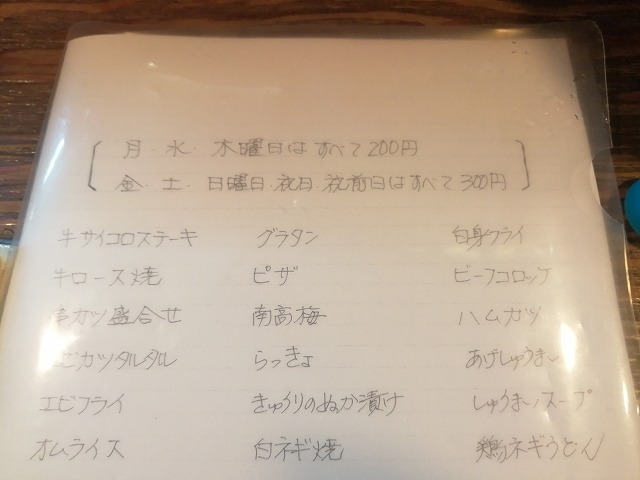 月・水・木曜日はすべて200円
金・土・日曜日・祝日・祝前日はすべて300円
牛サイコロステーキ グラタン 白身フライ
牛ロース焼 ピザ ビーフコロッケ
串カツ盛合せ 南高梅 ハムカツ
エビカツタルタル らっきょ あげしゅうまい
エビフライ きゅうりのぬか漬け しゅうまいスープ
オムライス 白ネギ焼 鶏ネギうどん